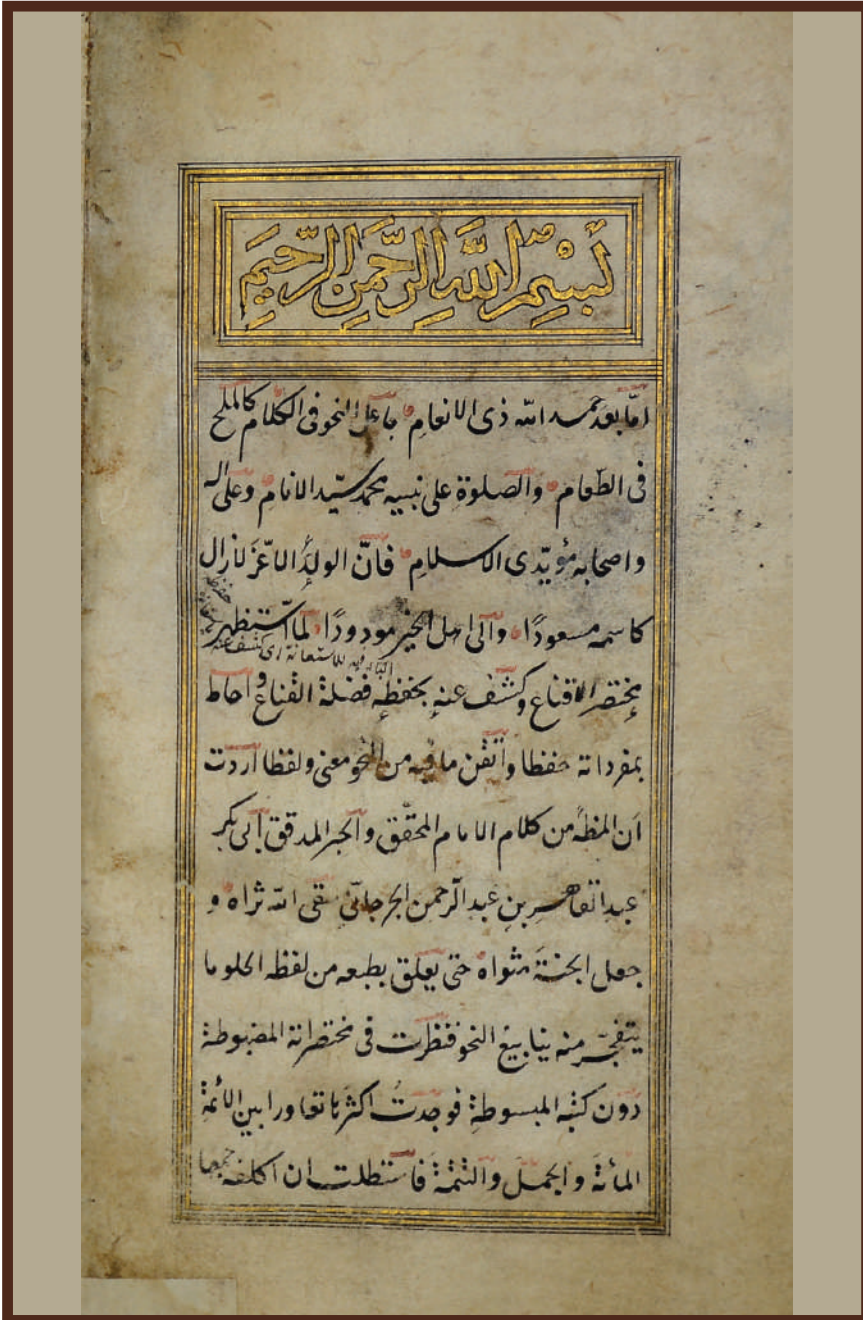 بِسْمِ اللَّهِ الرَّحْمَنِ الرَّحِيمِ
امّا بعد حمد الله ذى الانعام جاعل النحو فى الكلام كالملح
فى الطّعام والصلوة على نبيه محمد سيّد الانام وعلى اله
واصحابه مؤيّدى الاسلام فانّ الولدَ الاعزّ لازال
كاسمه مسعودًا والى اهل الخير مودودًا لمّا استظهر
مختصر الاقناع وكشف عنه بحفظه فضلة القناع و احاط
بمفرداته حفظا واتقن ما فيه من النحو معنى ولفظا اردت
ان المظه من كلام الامام المحقّق والحبر المدقق ابى بكر
عبد القاهر بن عبد الرّحمن الجرجانى سقى الله ثراه و
جعل الجنةَ مثواه حتى يعلق بطبعه من لفظه الحلو ما
يتفجّر منه ينابيع النحو فنظرت فى مختصراته المضبوطة
دون كتبه المبسوطة فوجدتُ اكثرها تعاورا بين الائمة
المائة والجمل والتتمة فاستطلت ان اكلفه جمعها